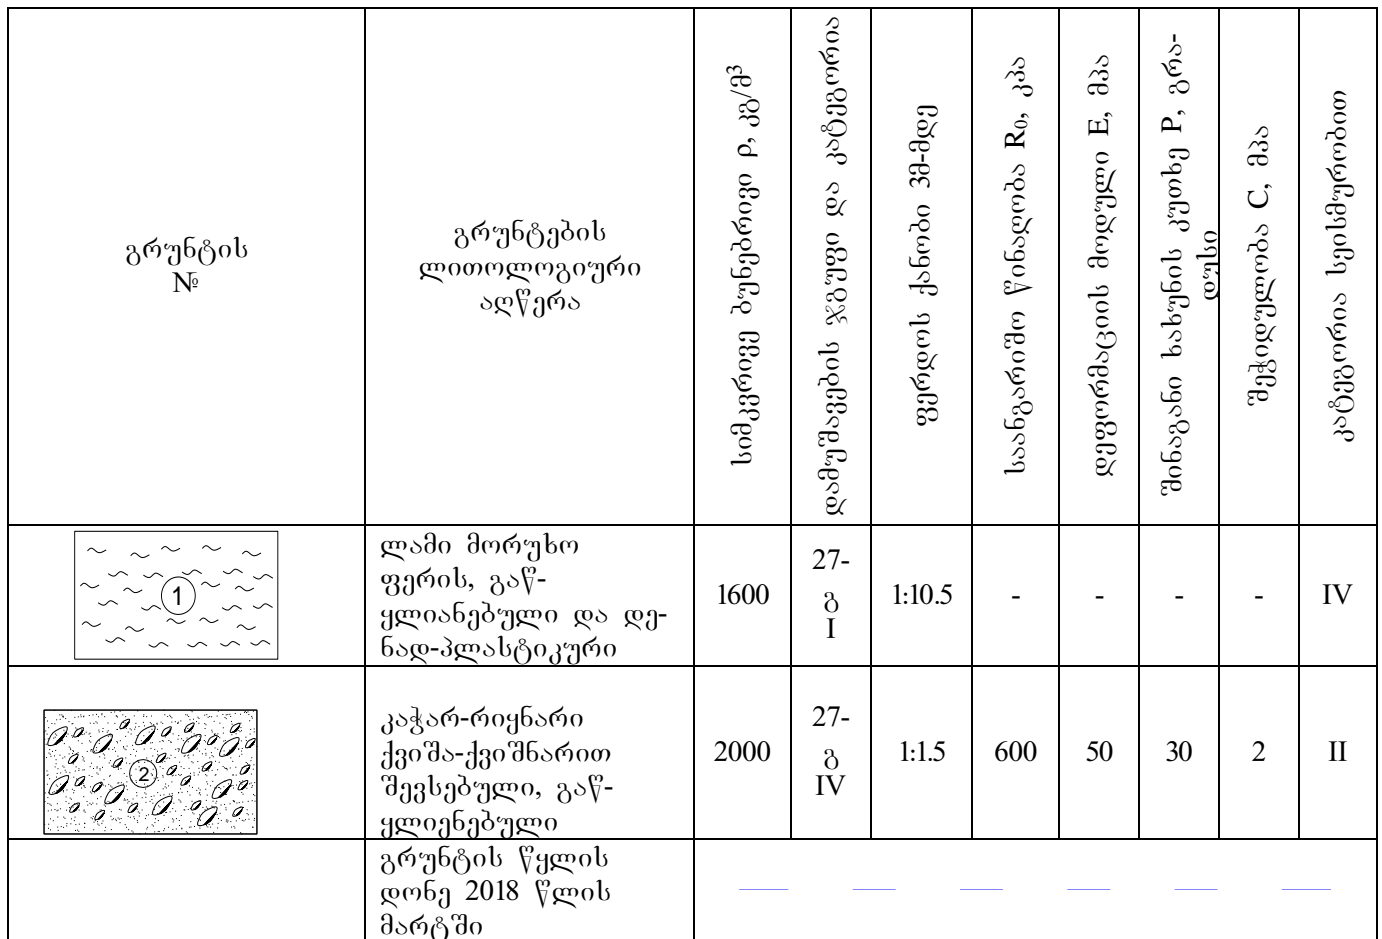 გრუნტის
№
გრუნტების
ლითოლოგიური
აღწერა
სიმკვრივე ბუნებრივი ρ, კგ/მ³
დამუშავების ჯგუფი და კატეგორია
ფერდოს ქანობი 3მ-მდე
საანგარიშო წინაღობა R₀, კპა
დეფორმაციის მოდული E, მპა
შინაგანი ხახუნის კუთხე P, გრა-
დუსი
შეჭიდულობა C, მპა
კატეგორია სეისმურობით
1
ლამი მორუხო
ფერის, გაწ-
ყლიანებული და დე-
ნად-პლასტიკური
1600
27-
გ
I
1:10.5
-
-
-
-
IV
2
კაჭარ-რიყნარი
ქვიშა-ქვიშნარით
შევსებული, გაწ-
ყლიენებული
2000
27-
გ
IV
1:1.5
600
50
30
2
II
გრუნტის წყლის
დონე 2018 წლის
მარტში